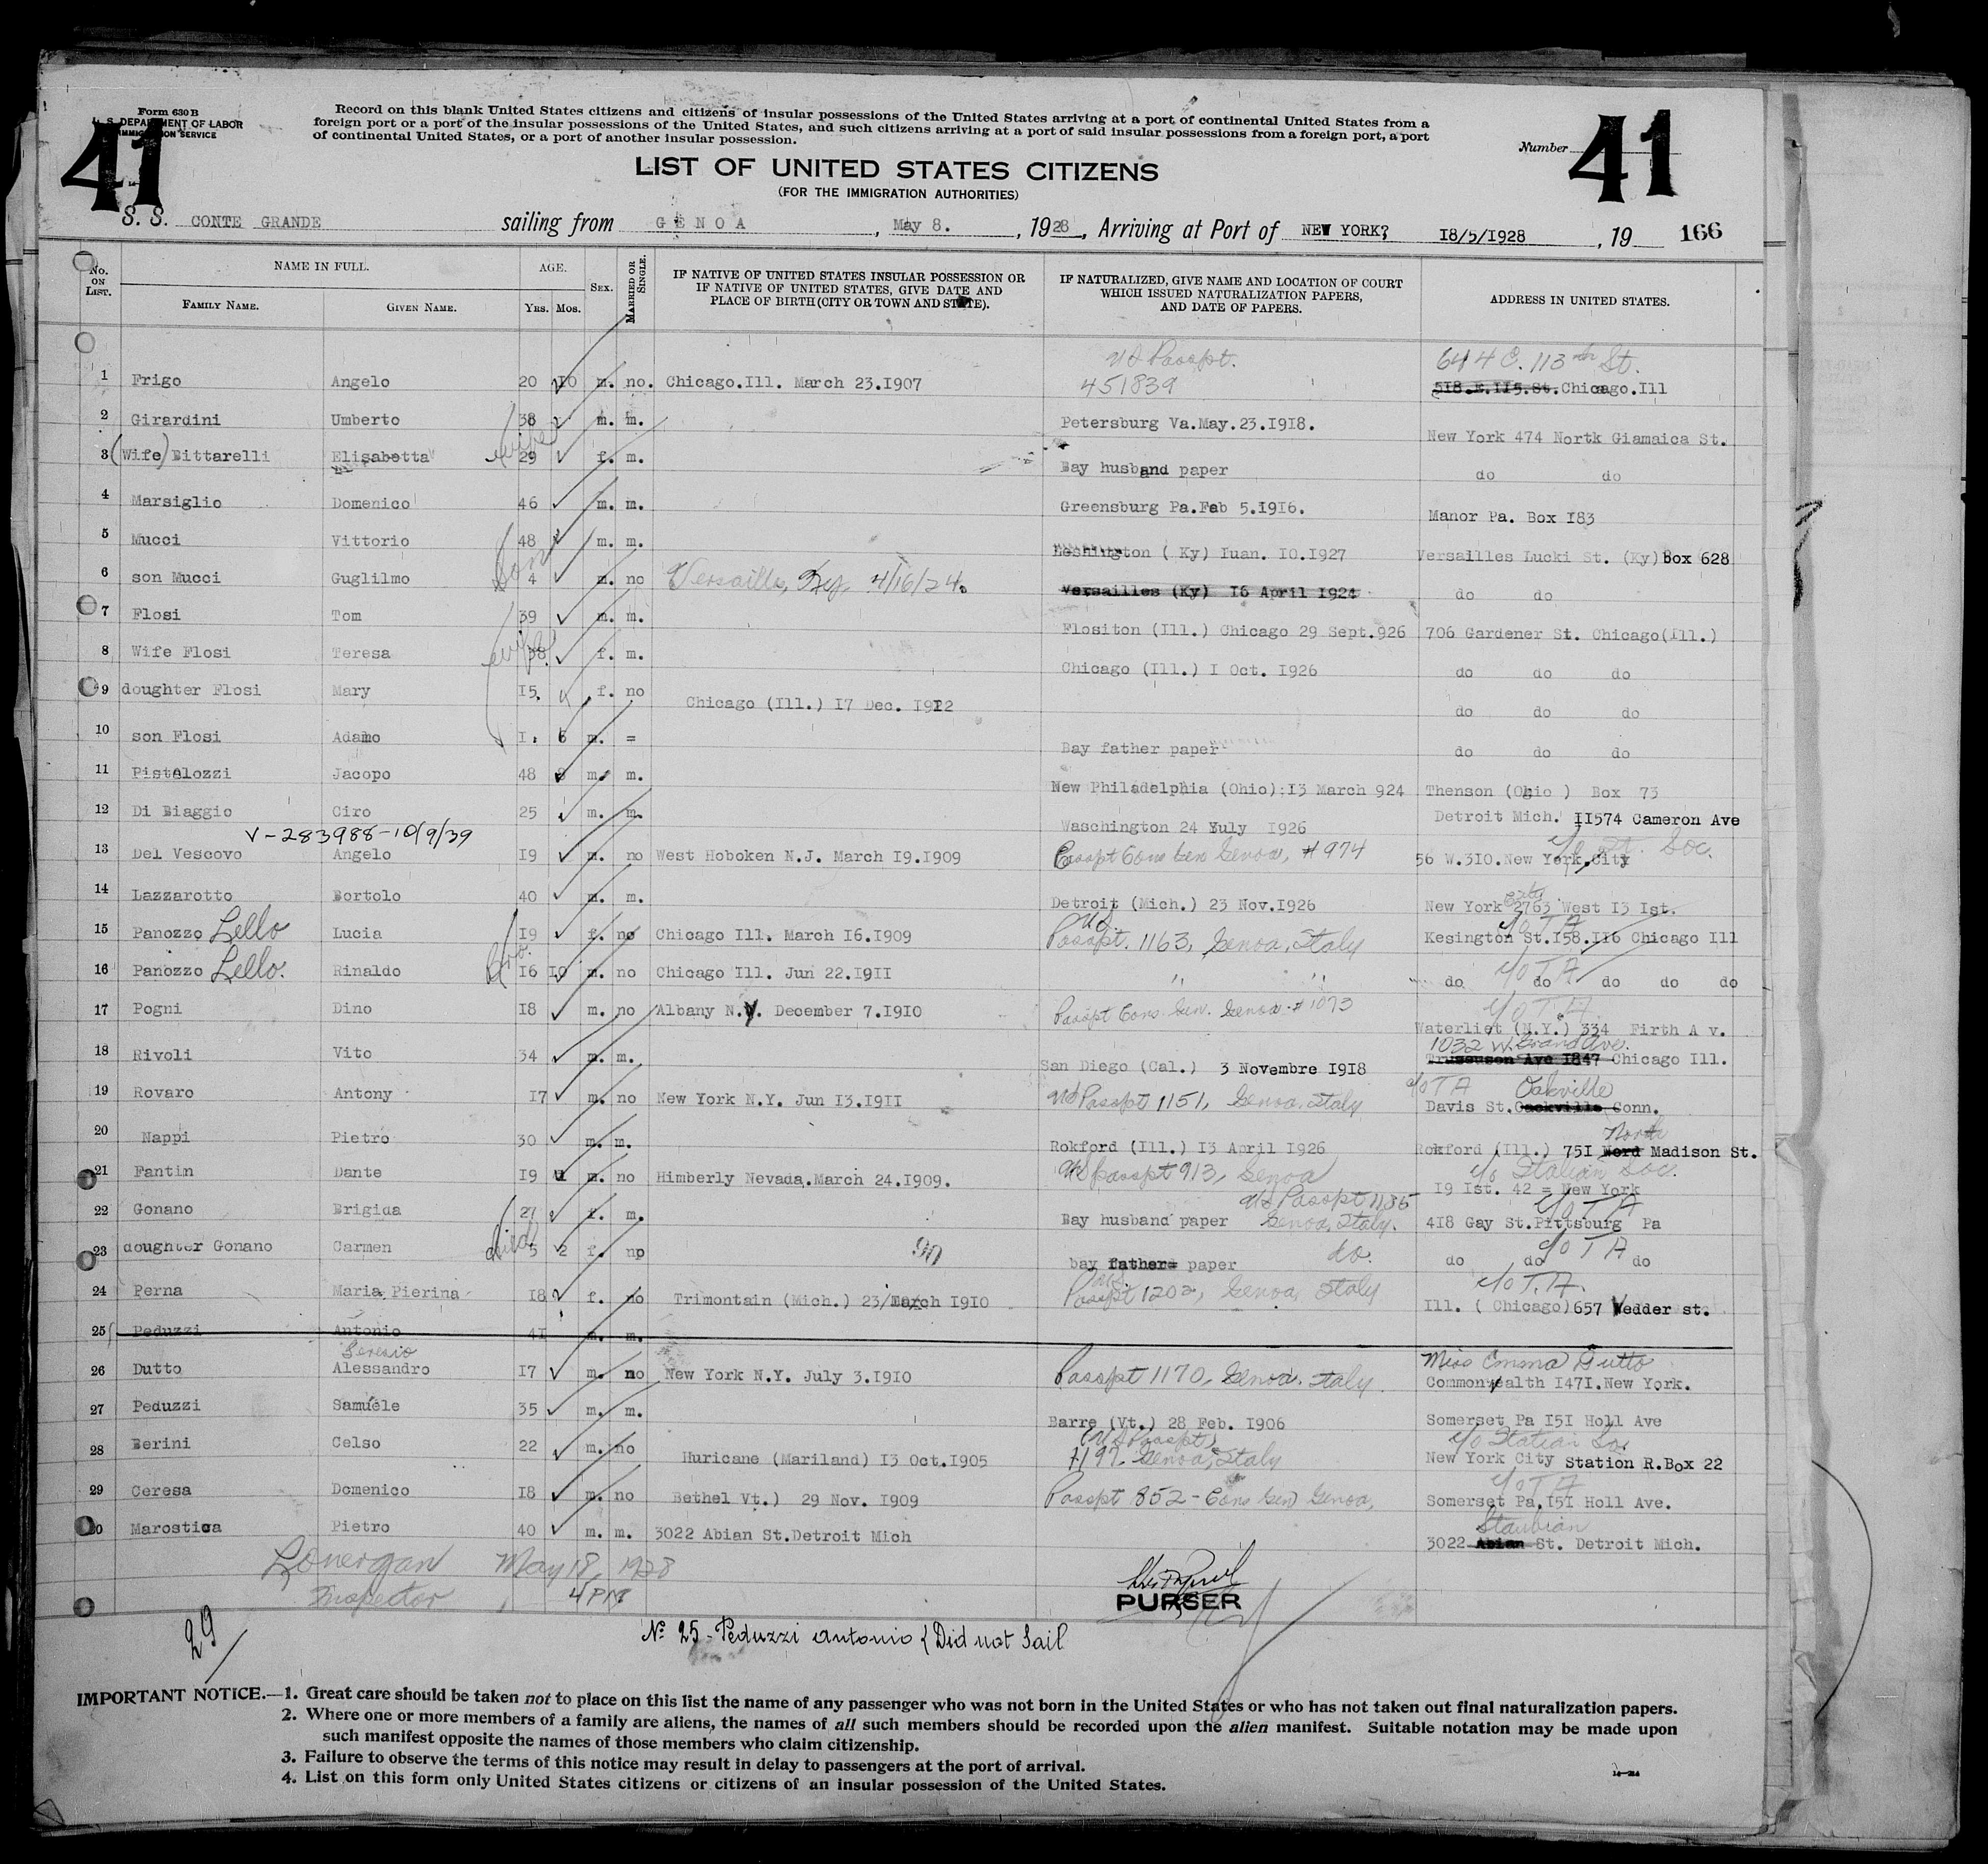 Form 630 B
U. S. DEPARTMENT OF LABOR
IMMIGRATION SERVICE
41
Record on this blank United States citizens and citizens of insular possessions of the United States arriving at a port of continental United States from a
foreign port or a port of the insular possessions of the United States, and such citizens arriving at a port of said insular possessions from a foreign port, a port
of continental United States, or a port of another insular possession.
Number 41
LIST OF UNITED STATES CITIZENS
(FOR THE IMMIGRATION AUTHORITIES)
S. S. CONTE GRANDE sailing from GENOA, May 8. , 1928, Arriving at Port of NEW YORK? 18/5/1928 , 19 166
No. ON LIST. NAME IN FULL. FAMILY NAME. GIVEN NAME. AGE. YRS. MOS. SEX. MARRIED OR SINGLE. IF NATIVE OF UNITED STATES INSULAR POSSESSION OR IF NATIVE OF UNITED STATES, GIVE DATE AND PLACE OF BIRTH (CITY OR TOWN AND STATE). IF NATURALIZED, GIVE NAME AND LOCATION OF COURT WHICH ISSUED NATURALIZATION PAPERS, AND DATE OF PAPERS. ADDRESS IN UNITED STATES.
US Passpt. 644 E. 113th St.
1 Frigo Angelo 20 10 m. no. Chicago.Ill. March 23.1907 451839 518.E.115.St.Chicago.Ill
2 Girardini Umberto 38 m. m. Petersburg Va.May.23.1918. New York 474 Nortk Giamaica St.
3 (Wife) Bittarelli Elisabetta wife 29 f. m. Bay husband paper do do
4 Marsiglio Domenico 46 m. m. Greensburg Pa.Feb 5.1916. Manor Pa. Box 183
5 Mucci Vittorio 48 m. m. ( Ky) Iuan. 10.1927 Versailles Lucki St. (Ky) Box 628
6 son Mucci Guglilmo son 4 m. no Versailles, Ky. 4/16/24. Versailles (Ky) 16 April 1924 do do
7 Flosi Tom 39 m. m. Flositon (Ill.) Chicago 29 Sept.926 706 Gardener St. Chicago(Ill.)
8 Wife Flosi Teresa wife 38 f. m. Chicago (Ill.) I Oct. 1926 do do do
9 doughter Flosi Mary 15. f. no Chicago (Ill.) 17 Dec. 1912 do do do
10 son Flosi Adamo I. 6 m. = Bay father paper do do do
11 Pistelozzi Jacopo 48 m. m. New Philadelphia (Ohio) 13 March 924 Thenson (Ohio ) Box 73
12 Di Biaggio Ciro 25 m. m. Waschington 24 Yuly 1926 Detroit Mich. 11574 Cameron Ave
V-283988-10/9/39
13 Del Vescovo Angelo 19 m. no West Hoboken N.J. March 19.1909 Passpt Cons Gen Genoa, #974 56 W.310.New York,City c/o St. Soc.
14 Lazzarotto Bortolo 40 m. m. Detroit (Mich.) 23 Nov.1926 New York City 2763 West 13 Ist.
15 Panozzo Lello Lucia 19 f. no Chicago Ill. March 16.1909 US Passpt. 1163, Genoa, Italy c/o T A Kesington St.158.116 Chicago Ill
16 Panozzo Lello. Rinaldo bro. 16 10 m. no Chicago Ill. Jun 22.1911 " " c/o T A do do do do do
17 Pogni Dino 18 m. no Albany N.Y. December 7.1910 Passpt Cons. Gen. Genoa # 1073 c/o T A. Waterliet (N.Y.) 334 Firth A v.
18 Rivoli Vito 34 m. m. San Diego (Cal.) 3 Novembre 1918 1032 W. Grand Ave. Ave 1847 Chicago Ill.
19 Rovaro Antony 17 m. no New York N.Y. Jun 13.1911 US Passpt 1151, Genoa, Italy c/o T A Oakville Davis St. Conn.
20 Nappi Pietro 30 m. m. Rokford (Ill.) 13 April 1926 Rokford (Ill.) 751 Nord North Madison St.
21 Fantin Dante 19 m. no Himberly Nevada.March 24.1909. US passpt 913, Genoa c/o Italian Soc. 19 Ist. 42 = New York
22 Gonano Brigida 27 f. m. Bay husband paper US Passpt 1185 Genoa, Italy. c/o T A 418 Gay St.Pittsburg Pa
23 doughter Gonano Carmen child 5 2 f. no bay father paper do. c/o T A do do do
24 Perna Maria Pierina 18 f. no Trimontain (Mich.) 23/March 1910 US Passpt 1202, Genoa, Italy c/o T.A. Ill. ( Chicago) 657 Vedder st.
25 Peduzzi Antonio 41 m. m.
26 Dutto Alessandro 17 m. no New York N.Y. July 3.1910 Passpt 1170, Genoa. Italy. Miss Emma Dutto Commonwealth 1471.New York.
27 Peduzzi Samuele 35 m. m. Barre (Vt.) 28 Feb. 1906 Somerset Pa 151 Holl Ave
28 Berini Celso 22 m. no Huricane (Mariland) 13 Oct.1905 (US Passpt) 1197. Genoa, Italy c/o Italian Soc. New York City Station R.Box 22
29 Ceresa Domenico 18 m. no Bethel Vt.) 29 Nov. 1909 Passpt 852 - Cons Gen Genoa, c/o T A Somerset Pa,151 Holl Ave.
30 Marostica Pietro 40 m. m. 3022 Abian St.Detroit Mich Staubian 3022 Abian St. Detroit Mich.
Lonergan May 18, 1928
Inspector 4 PM
PURSER
29
No 25 - Peduzzi Antonio { Did not Sail
IMPORTANT NOTICE.—1. Great care should be taken not to place on this list the name of any passenger who was not born in the United States or who has not taken out final naturalization papers.
2. Where one or more members of a family are aliens, the names of all such members should be recorded upon the alien manifest. Suitable notation may be made upon
such manifest opposite the names of those members who claim citizenship.
3. Failure to observe the terms of this notice may result in delay to passengers at the port of arrival.
4. List on this form only United States citizens or citizens of an insular possession of the United States.